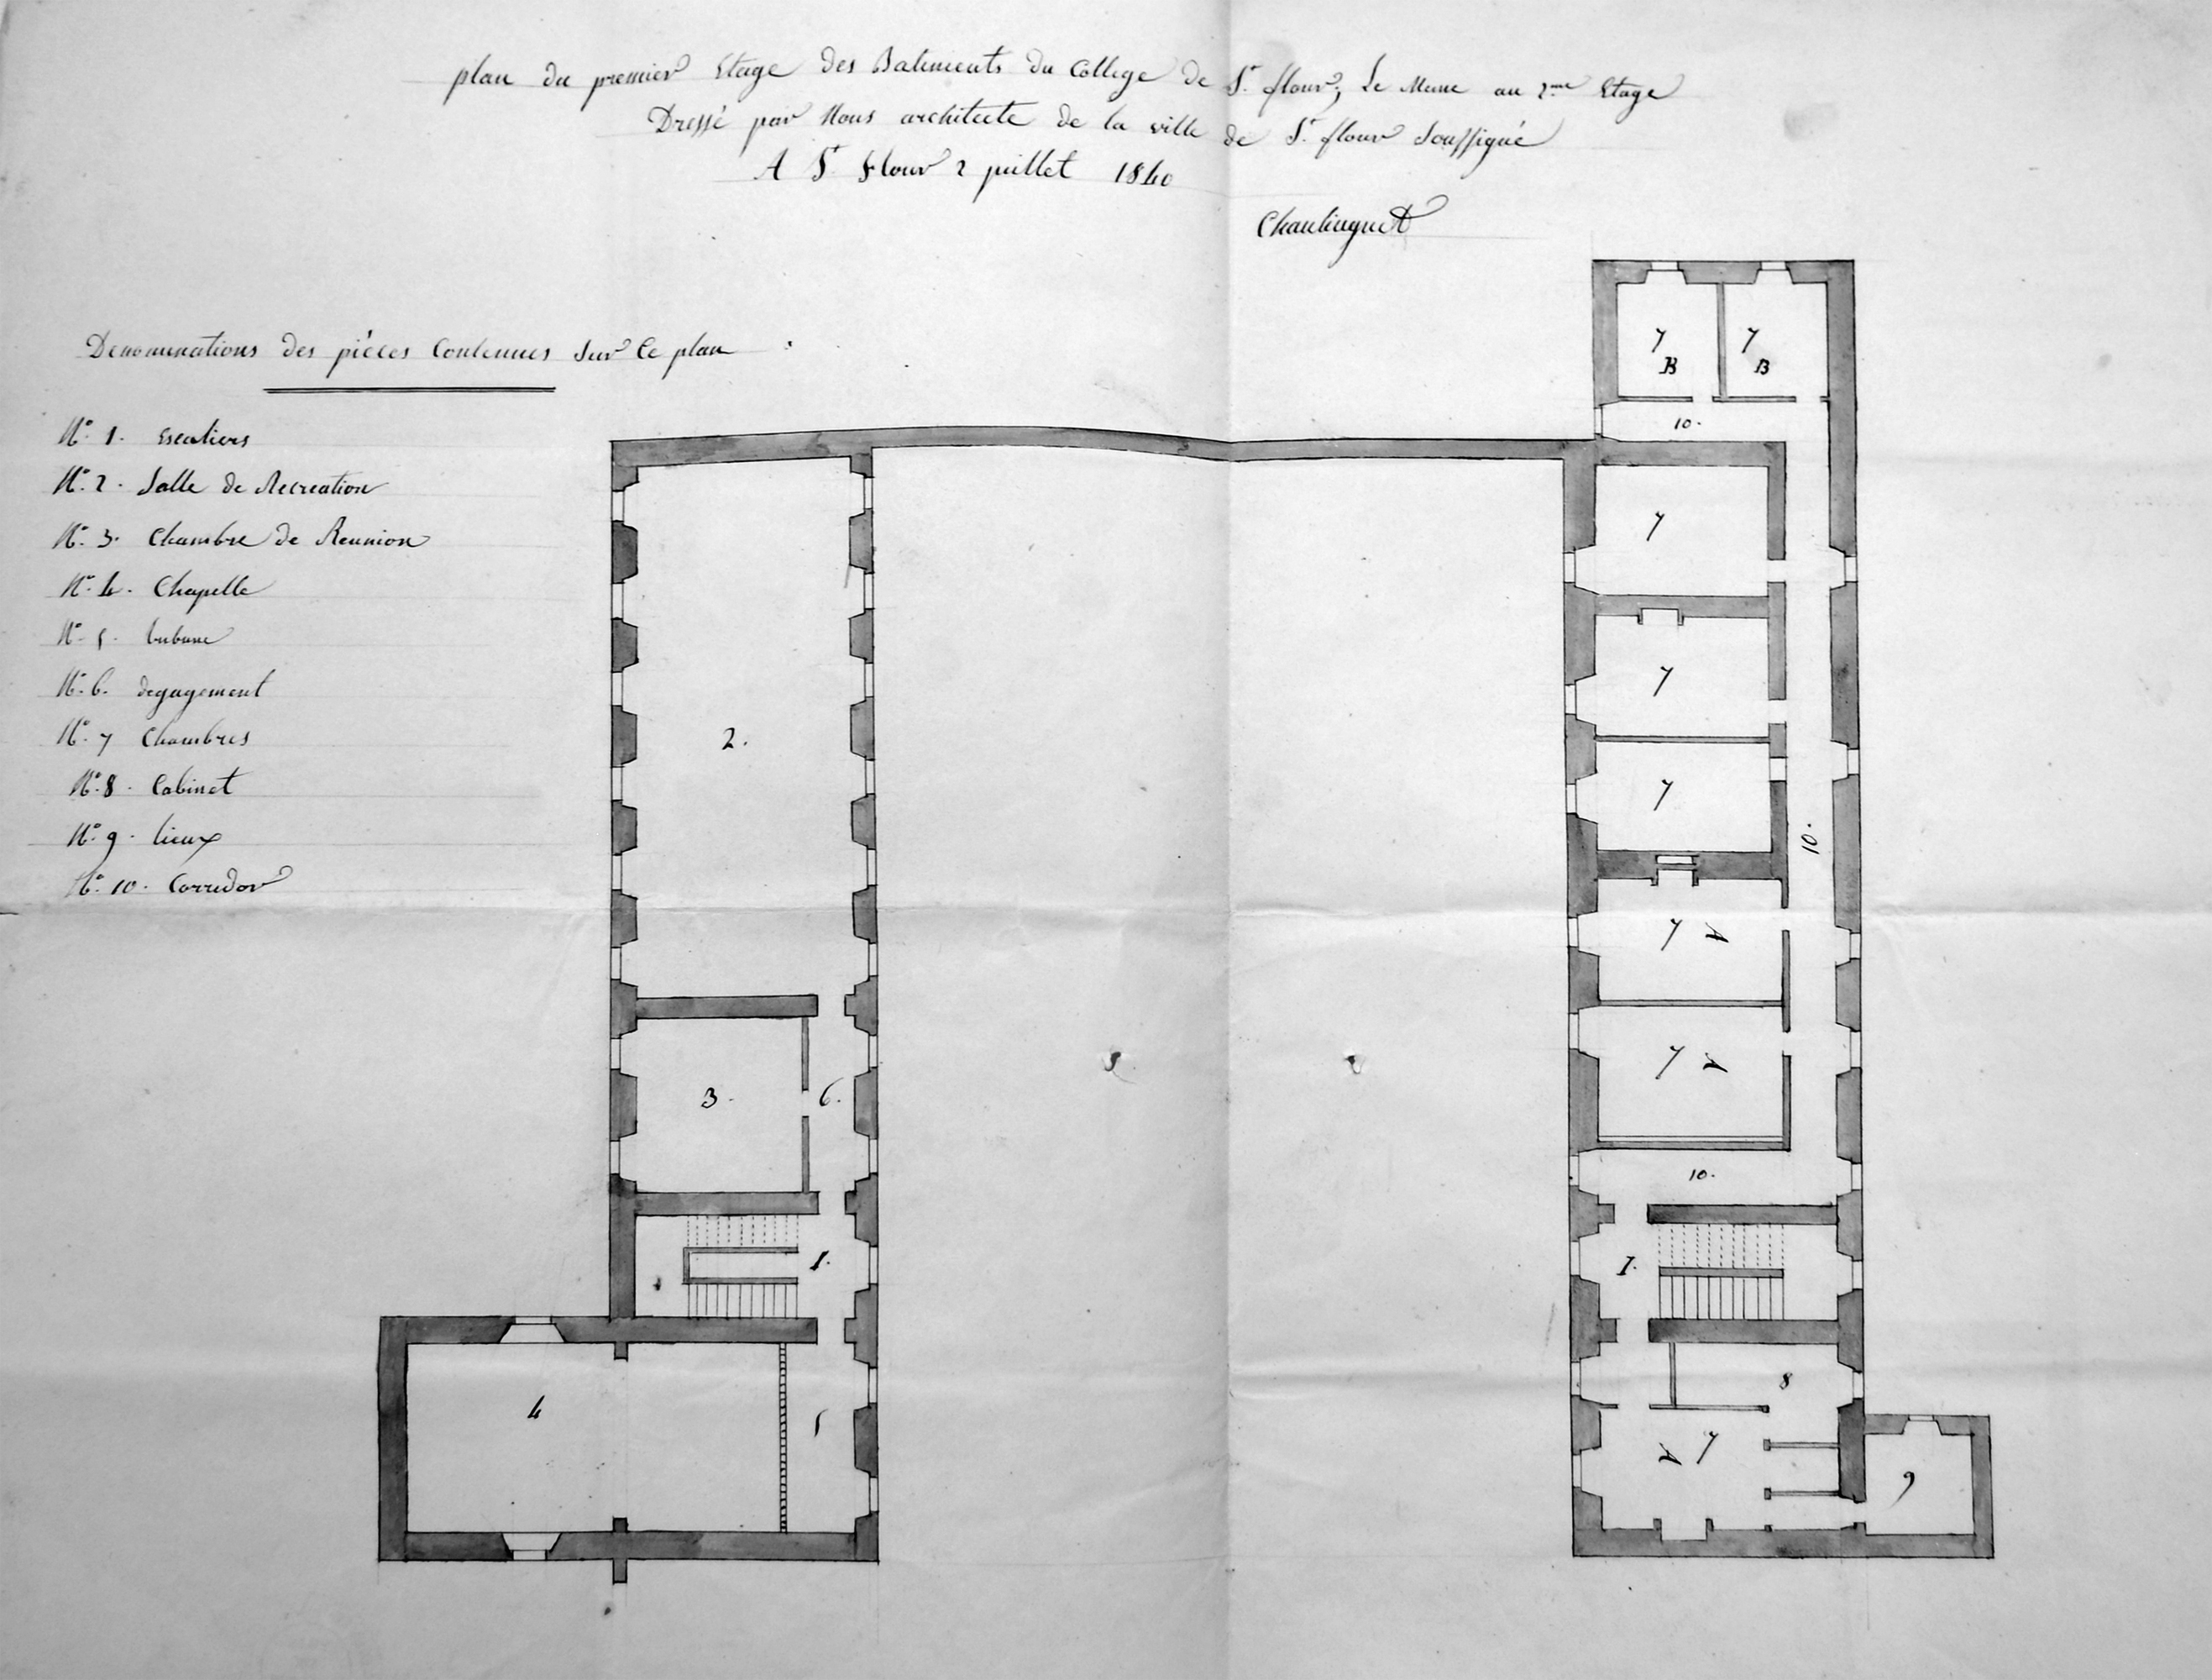 plan du premier Etage des Batiments du College de St. flour, Le Meme au 2me Etage
Dressé par Nous architecte de la ville de St. flour Soussigné
A St. flour 2 juillet 1840
Denominations des piéces Contenues Sur Ce plan
No. 1. Escaliers
No. 2. Salle de Recreation
No. 3. Chambre de Reunion
No. 4. Chapelle
No. 5. tribune
No. 6. degagement
No. 7 Chambres
No. 8. Cabinet
No. 9. lieux
No. 10. Corridor
7 B
7 B
10.
7
7
7
10.
7
7
10.
1.
8
7
9
2.
3.
6.
1.
4
5